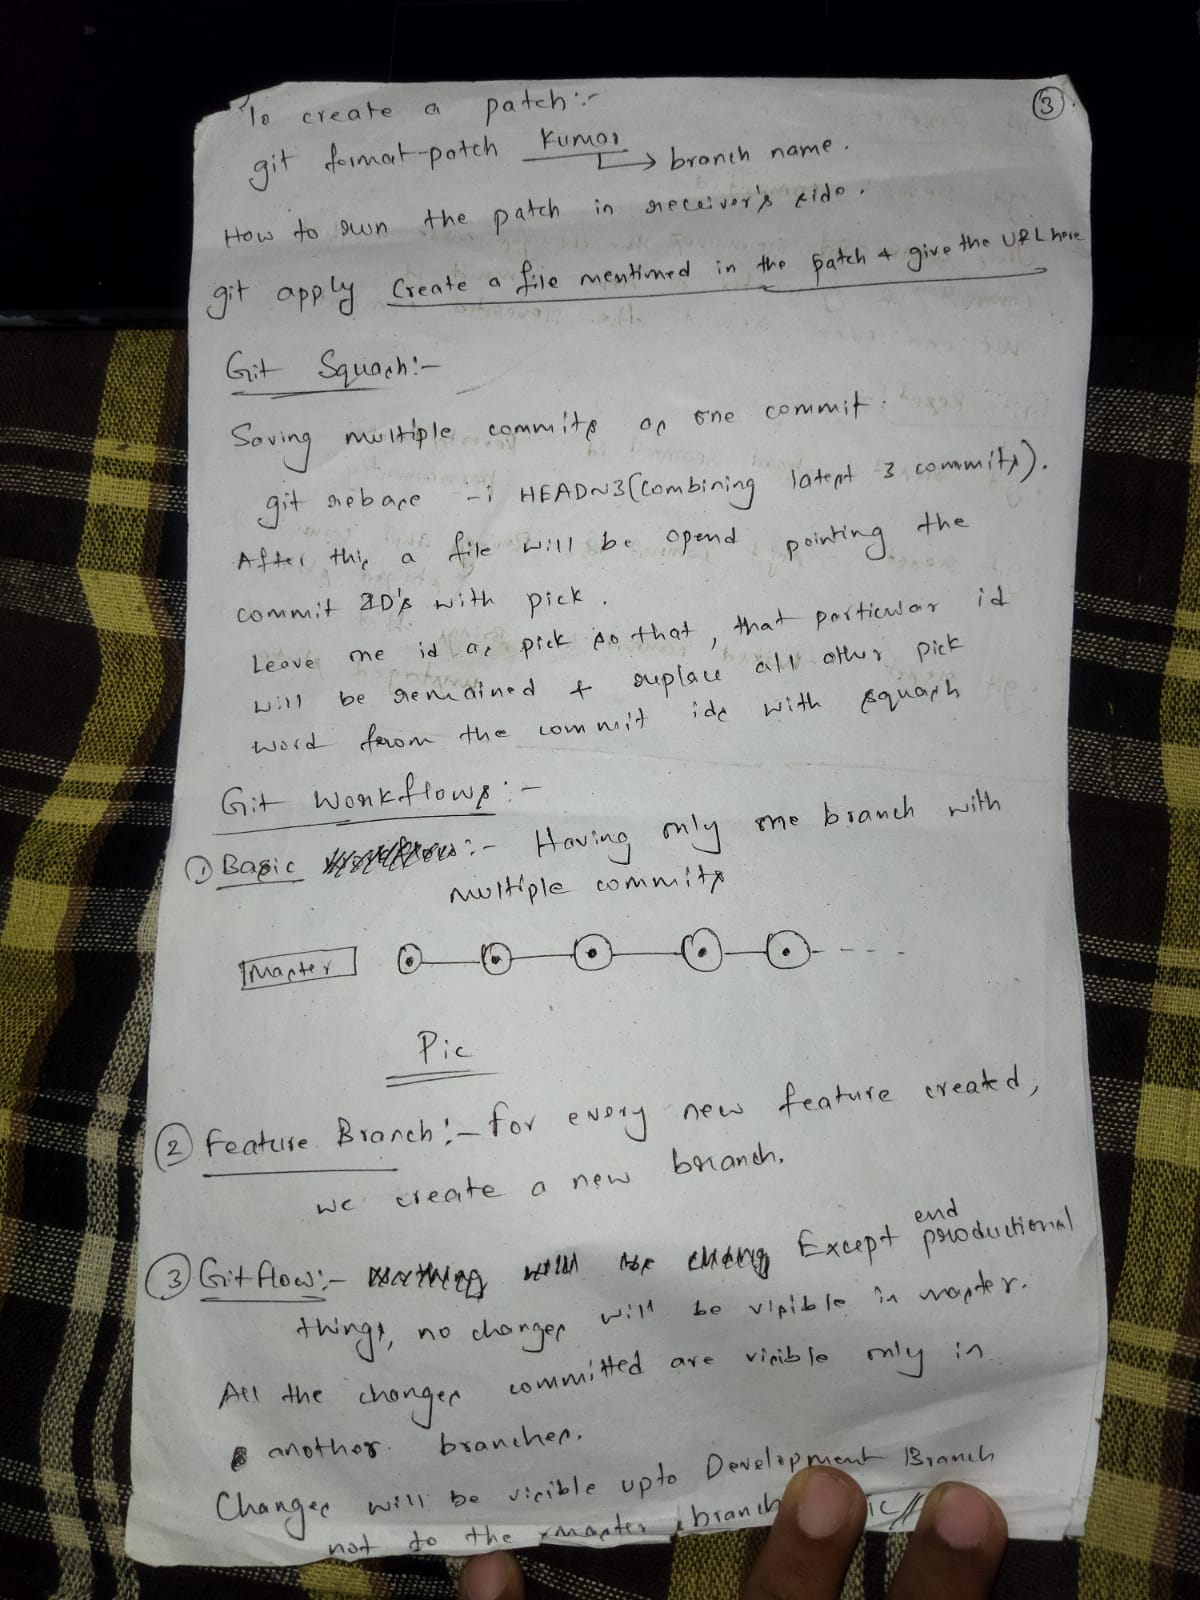 ③
To create a patch:-
git format-patch Kumar → branch name.
How to run the patch in receiver's side.
git apply Create a file mentioned in the patch & give the URL here
Git Squash:-
Saving multiple commits as one commit.
git rebase -i HEAD~3 (combining latest 3 commits).
After this a file will be opend pointing the
commit ID's with pick.
Leave one id as pick so that, that particular id
will be remained & replace all other pick
word from the commit ids with squash
Git Workflows:-
① Basic :- Having only one branch with
multiple commits
Master
Pic
② Feature Branch:- for every new feature created,
we create a new branch.
③ Git flow:- Except end productional
things, no changes will be visible in master.
All the changes committed are visible only in
another branches.
Changes will be visible upto Development Branch
not to the master branch